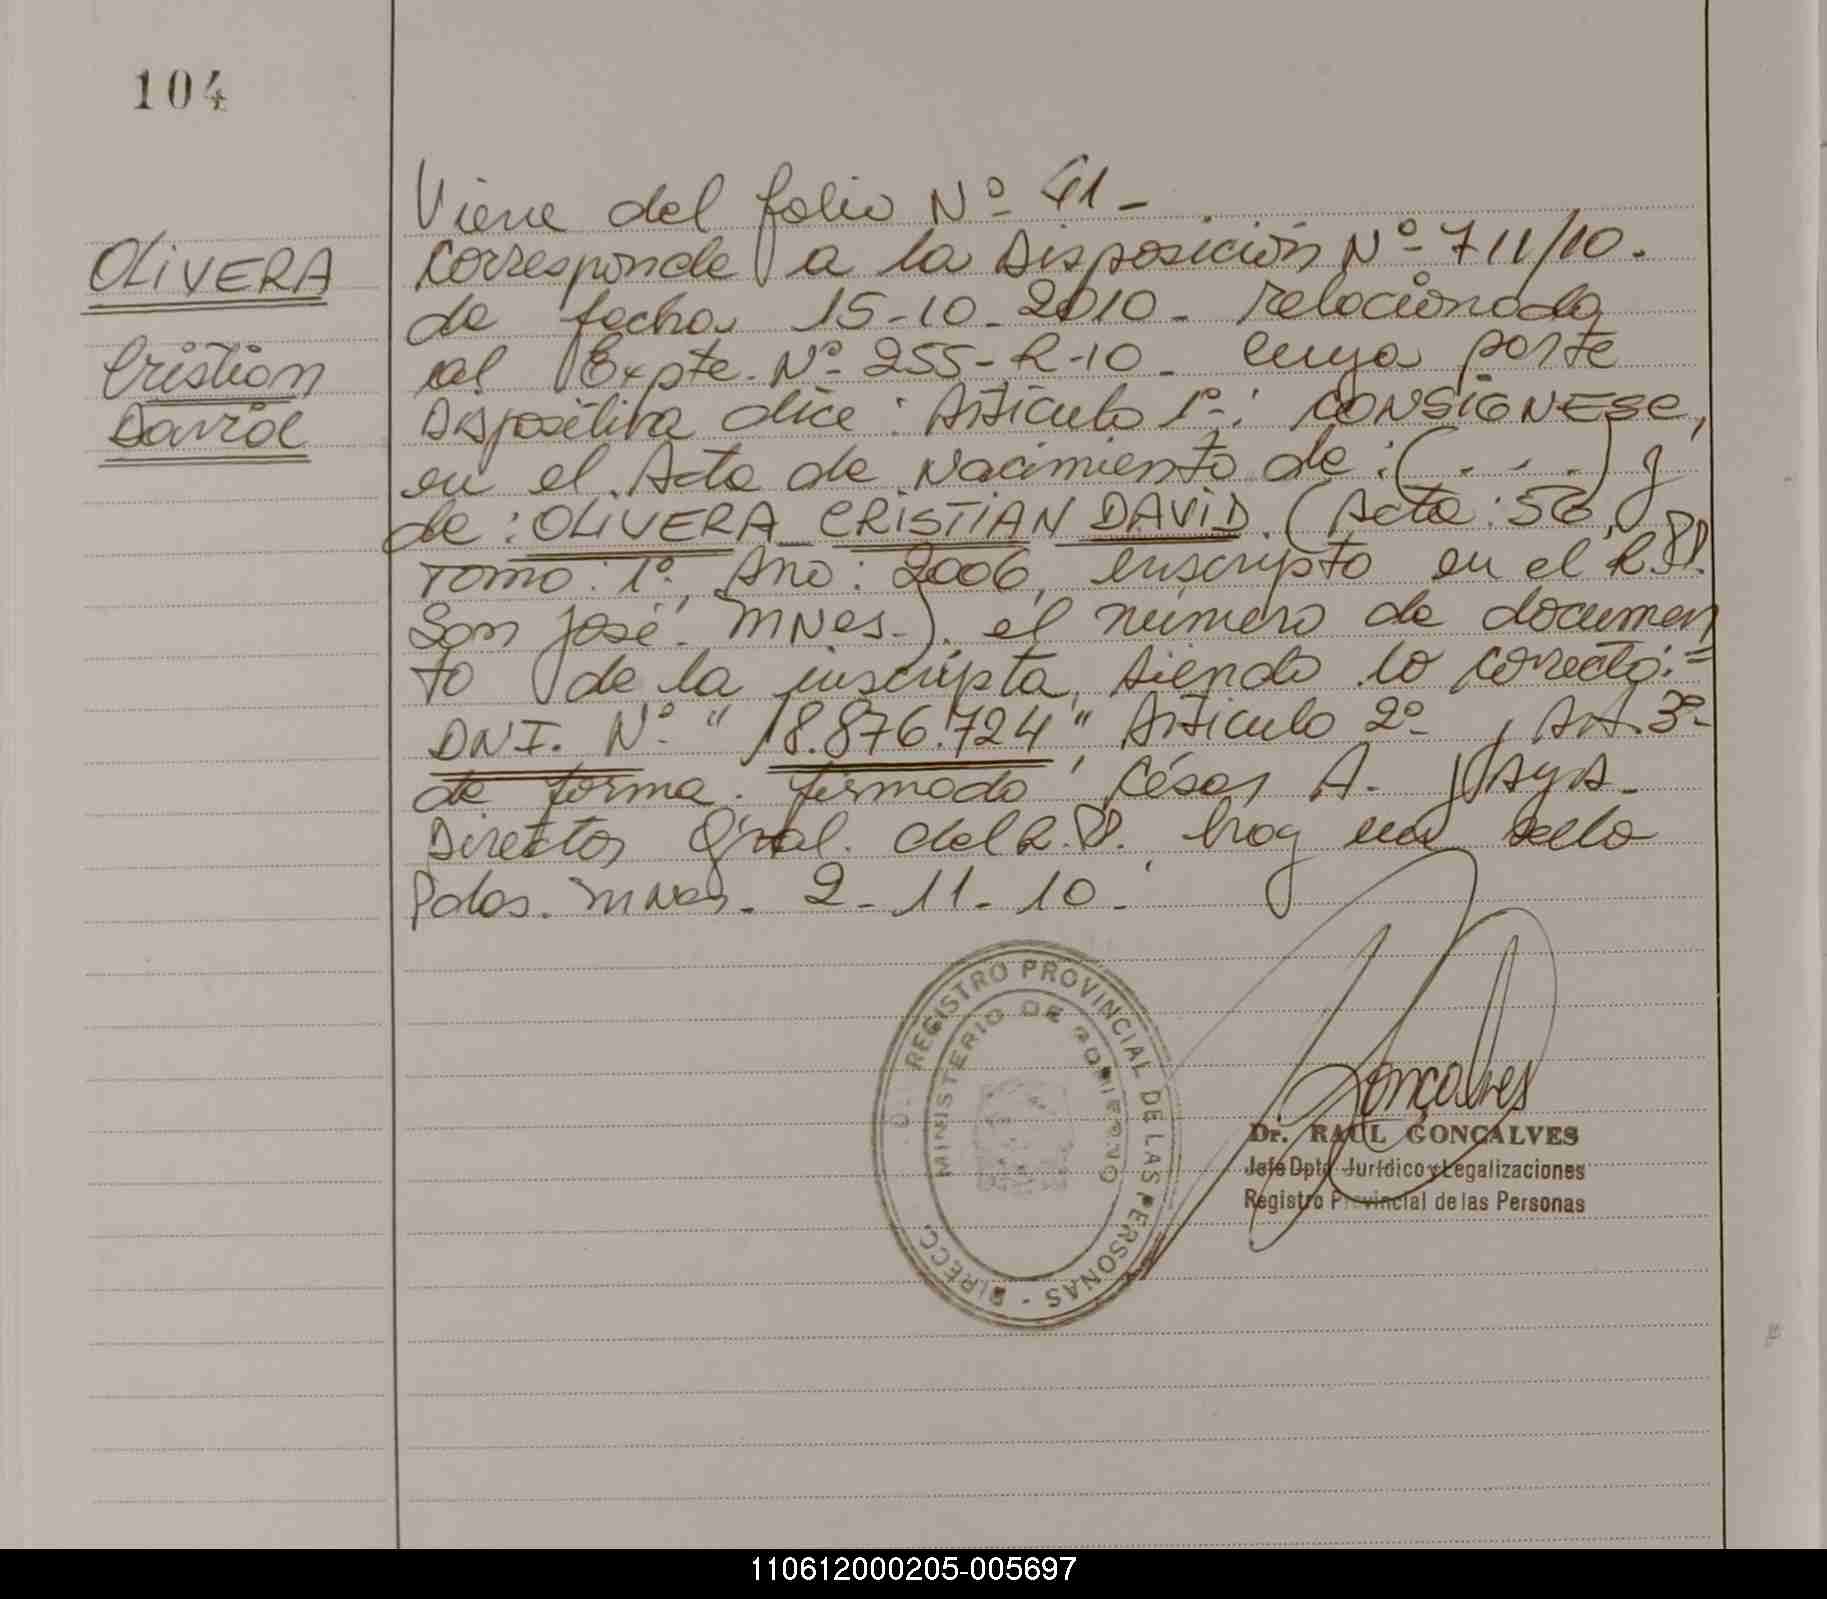 104
OLIVERA
Cristian
David
Viene del folio Nº 41-
Corresponde a la Disposición Nº 711/10.
de fecha 15-10-2010- relacionada
al Expte. Nº 255-R-10- cuya parte
Dispositiva dice: Artículo 1º: CONSIGNESE,
en el Acta de Nacimiento de: (...) y
de: OLIVERA CRISTIAN DAVID. (Acta: 56,
Tomo: 1º, Año: 2006, inscripto en el R.P.
San José. MNes.). el número de documen
to de la inscripta, siendo lo correcto:=
DNI. Nº "18.876.724", Artículo 2º, Art. 3º-
de forma. firmado César A.
Director Gral. del R.P. hay un sello
Pdas. MNes. 2-11-10-
DIRECC. G. REGISTRO PROVINCIAL DE LAS PERSONAS -
MINISTERIO DE GOBIERNO
Gonçalves
Dr. RAUL GONÇALVES
Jefe Dpto Jurídico y Legalizaciones
Registro Provincial de las Personas
110612000205-005697